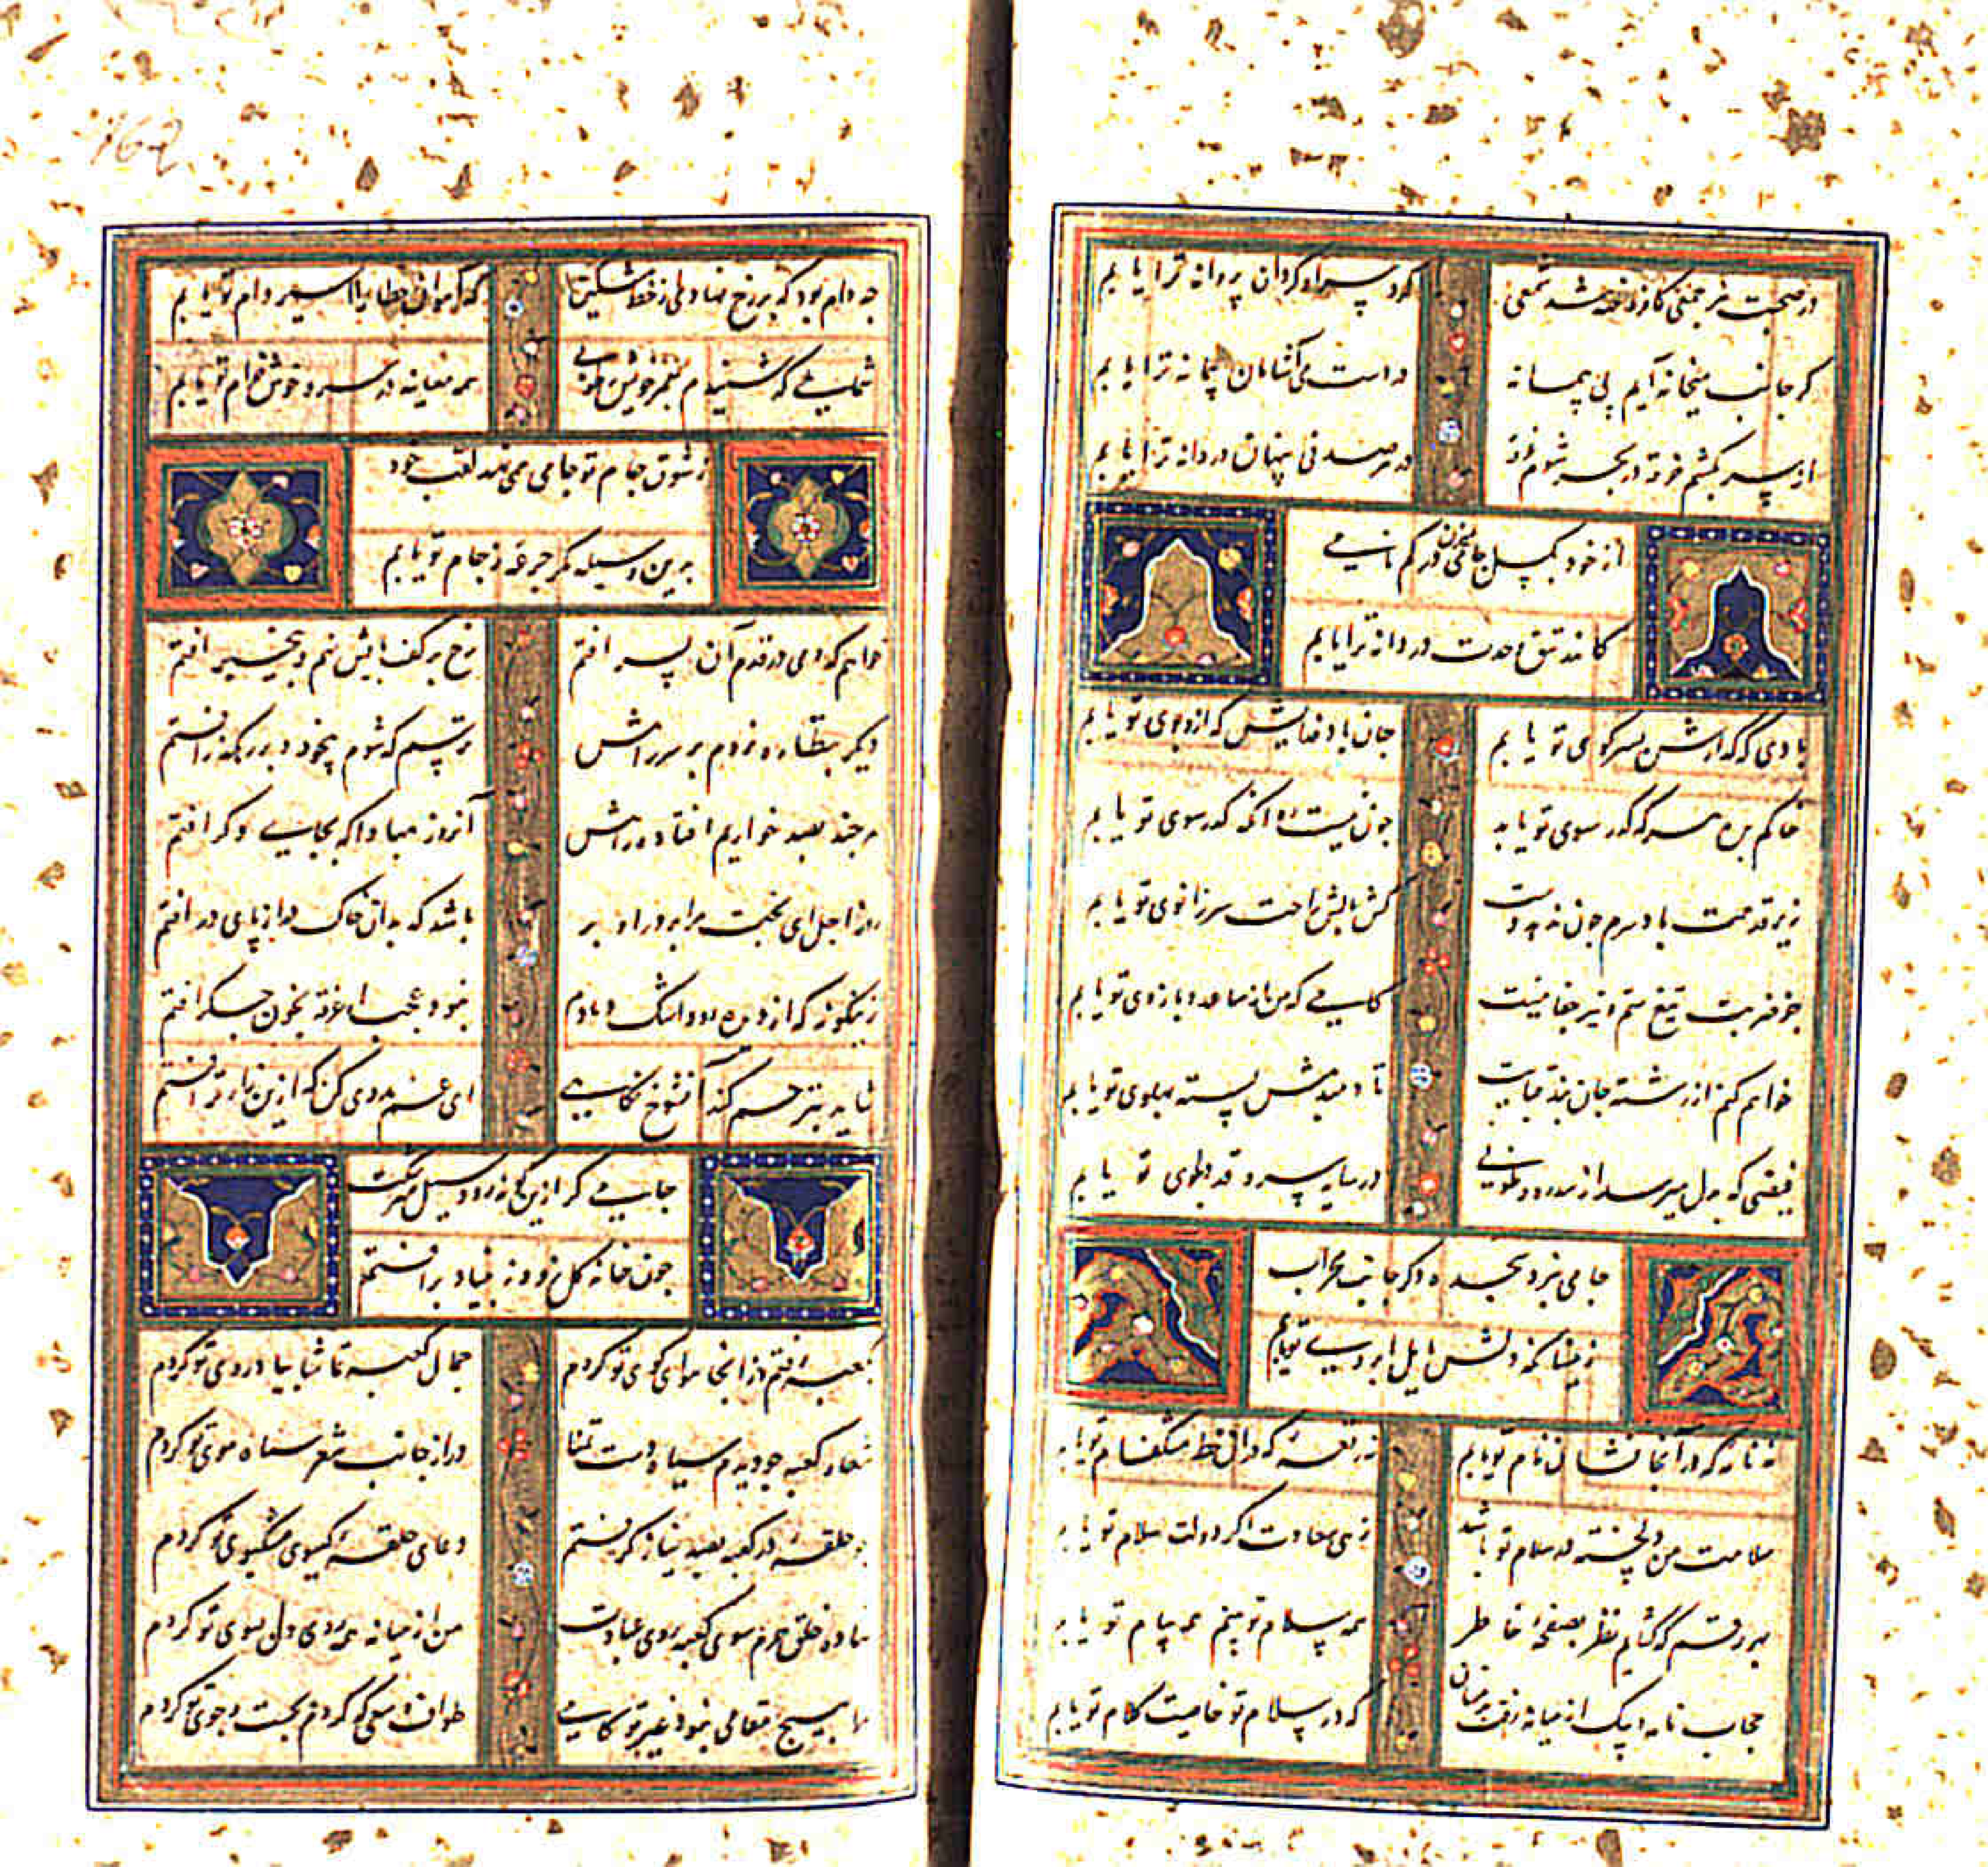 در صحبت هر جمعی کافروخته شد شمعی
کرد سر او کردان پروانه ترا یابم
کر جانب میخانه آیم پی پیمانه
در دست می آشامان پیمانه ترا یابم
از سر بکشم خرقه در بحر شوم غرقه
در هر صدفی پنهان دردانه ترا یابم
از خود بکسل جامی
کاندر تتق وحدت دردانه ترا یابم
بادی که کذارش بسر کوی تو یابم
جان باد فدایش که ازو بوی تو یابم
خاکم بره هر که کذر سوی تو یابد
چون نیست ره آنکه کذر سوی تو یابم
زیر قدمت باد سرم چون ندهد دست
کش بالش راحت سر زانوی تو یابم
جز ضربت تیغ ستم و تیر جفا نیست
کامی که من از ساعد و بازوی تو یابم
خواهم کنم از رشته جان بند قبایت
تا دمبدمش بسته پهلوی تو یابم
فیضی که بدل میرسد از سدره و طوبی
در سایه سرو قد دلجوی تو یابم
جامی نبرد سجده دکر جانب محراب
زینسان که دلش مایل ابروی تو یابم
نه نامه که در آنجا نشان نام تو یابم
نه رقعه که در آن خط مشکفام تو یابم
سلامت من دلخسته در سلام تو باشد
زهی سعادت اکر دولت سلام تو یابم
بهر رقم که کشایم نظر بصفحه خاطر
همه سلام تو بینم همه پیام تو یابم
حجاب نامه و پیک از میانه رفت
که در سلام تو خاصیت کلام تو یابم
162
چه دام بود که بر رخ نهادی از خط مشکین
که
شمایلی که شنیدم
همه معاینه در سرو خوش خرام تو یابم
ز شوق جام تو جامی همی نهد لقب خود
بدین وسیله مکر جرعه ز جام تو یابم
خواهم که دمی در قدم آن پسر افتم
رخ بر کف پایش نهم و بیخبر افتم
دیکر بنظاره نروم بر سر راهش
ترسم که شوم بیخود و بر رهکذر افتم
هر چند بصد خواریم افتاده در راهش
آنروز مبادا که بجایی دکر افتم
روز اجل ای بخت مرا بر در او بر
باشد که بدان خاک در از پای در افتم
زینکونه که از دیده رود اشک دمادم
نبود عجب ار غرقه بخون جکر افتم
شاید بترحم کند آن شوخ نکاهی
ای غم مددی کن که ازین زارتر افتم
جامی کر ازین کونه رود سیل سرشکت
چون خانه کل زود ز بنیاد بر افتم
بکعبه رفتم و ز آنجا هوای کوی تو کردم
جمال کعبه تماشا بیاد روی تو کردم
شعار کعبه چو دیدم سیاه دست تمنا
دراز جانب شعر سیاه موی تو کردم
چو حلقه در کعبه بصد نیاز کرفتم
دعای حلقه کیسوی مشکبوی تو کردم
نهاده خلق حرم سوی کعبه روی عبادت
من از میانه همه روی دل بسوی تو کردم
مرا بهیچ مقامی نبود غیر تو کامی
طواف و سعی که کردم بجست و جوی تو کردم